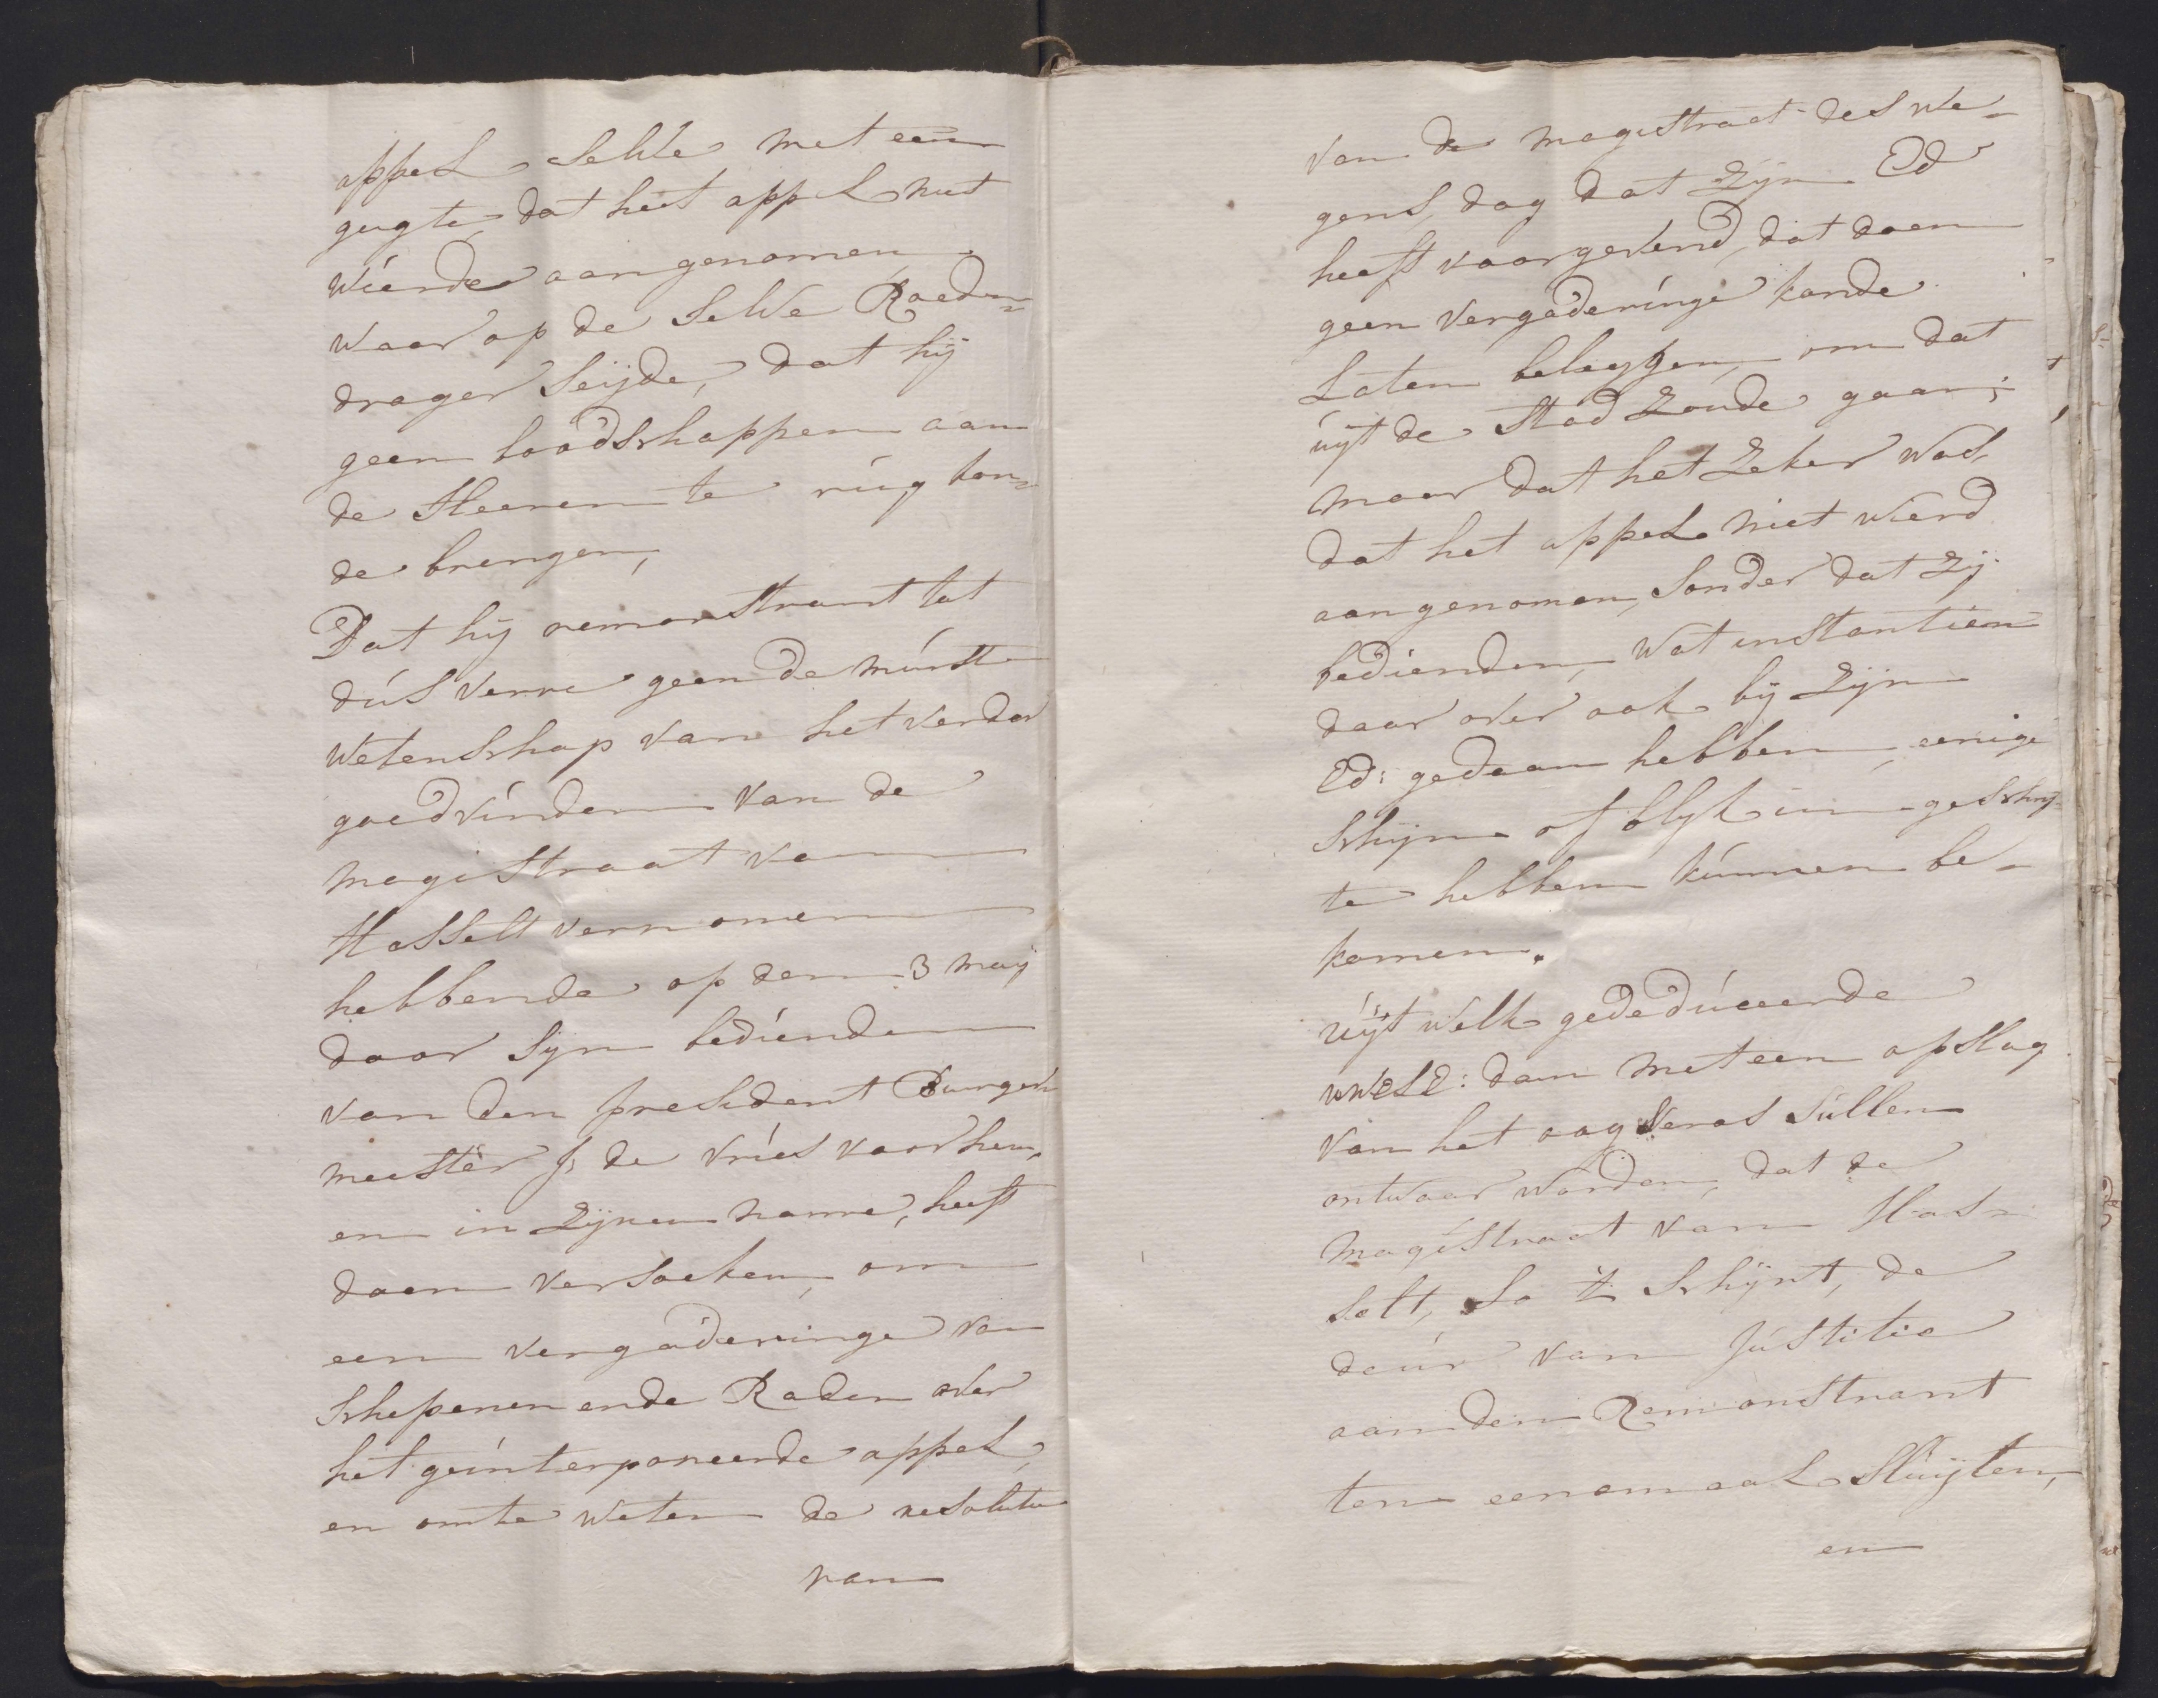 appel selve met een
gugte, dat heet appel niet
wierde aangenomen,
waar op de selve Roeden=
drager seijde, dat hij
geen boodschappen aan
de Heeren te rúg kon=
de brengen,
Dat hij remonstrant tot
dús verre geen de minste
wetenschap van het verder
goedvinden van de
magistraat van
Hasselt vernomen
hebbende op den 3 maij
door sijn bediende
van den president Burger
meester J: de Vries voor hem,
en in zijnen name, heeft
doen versoeken, om
een vergaderinge van
Schepenen ende Raden over
het geinterponeerde appel,
en om te weten de resolutie
van
van de magistraat des we=
gens, dog dat zijn Ed
heeft voorgevend, dat doen
geen vergaderinge konde
Laten beleggen, om dat
úyt de Stad zoude gaan;
maar dat het zeker was,
dat het appel niet wierd
aangenomen, sonder dat zij
bedienden, wat instantien
daar over ook bij zijn
Ed: gedaan hebben, eenige
schijn of blijk in geschrif=
te hebben kúnnen be=
komen.
úijt welk gededúceerde
UWELE: dan met een opslag
van het oog Veras súllen
ontwaar worden, dat de
magistraat van Has=
selt, so 't schijnt, de
deúr van Jústitie
aan den Remonstrant
ten eenemaal sluijten,
en